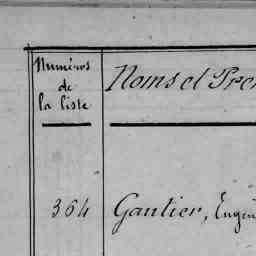 Numéros
de
la liste
Noms et Pré
364
Gautier, Eugè